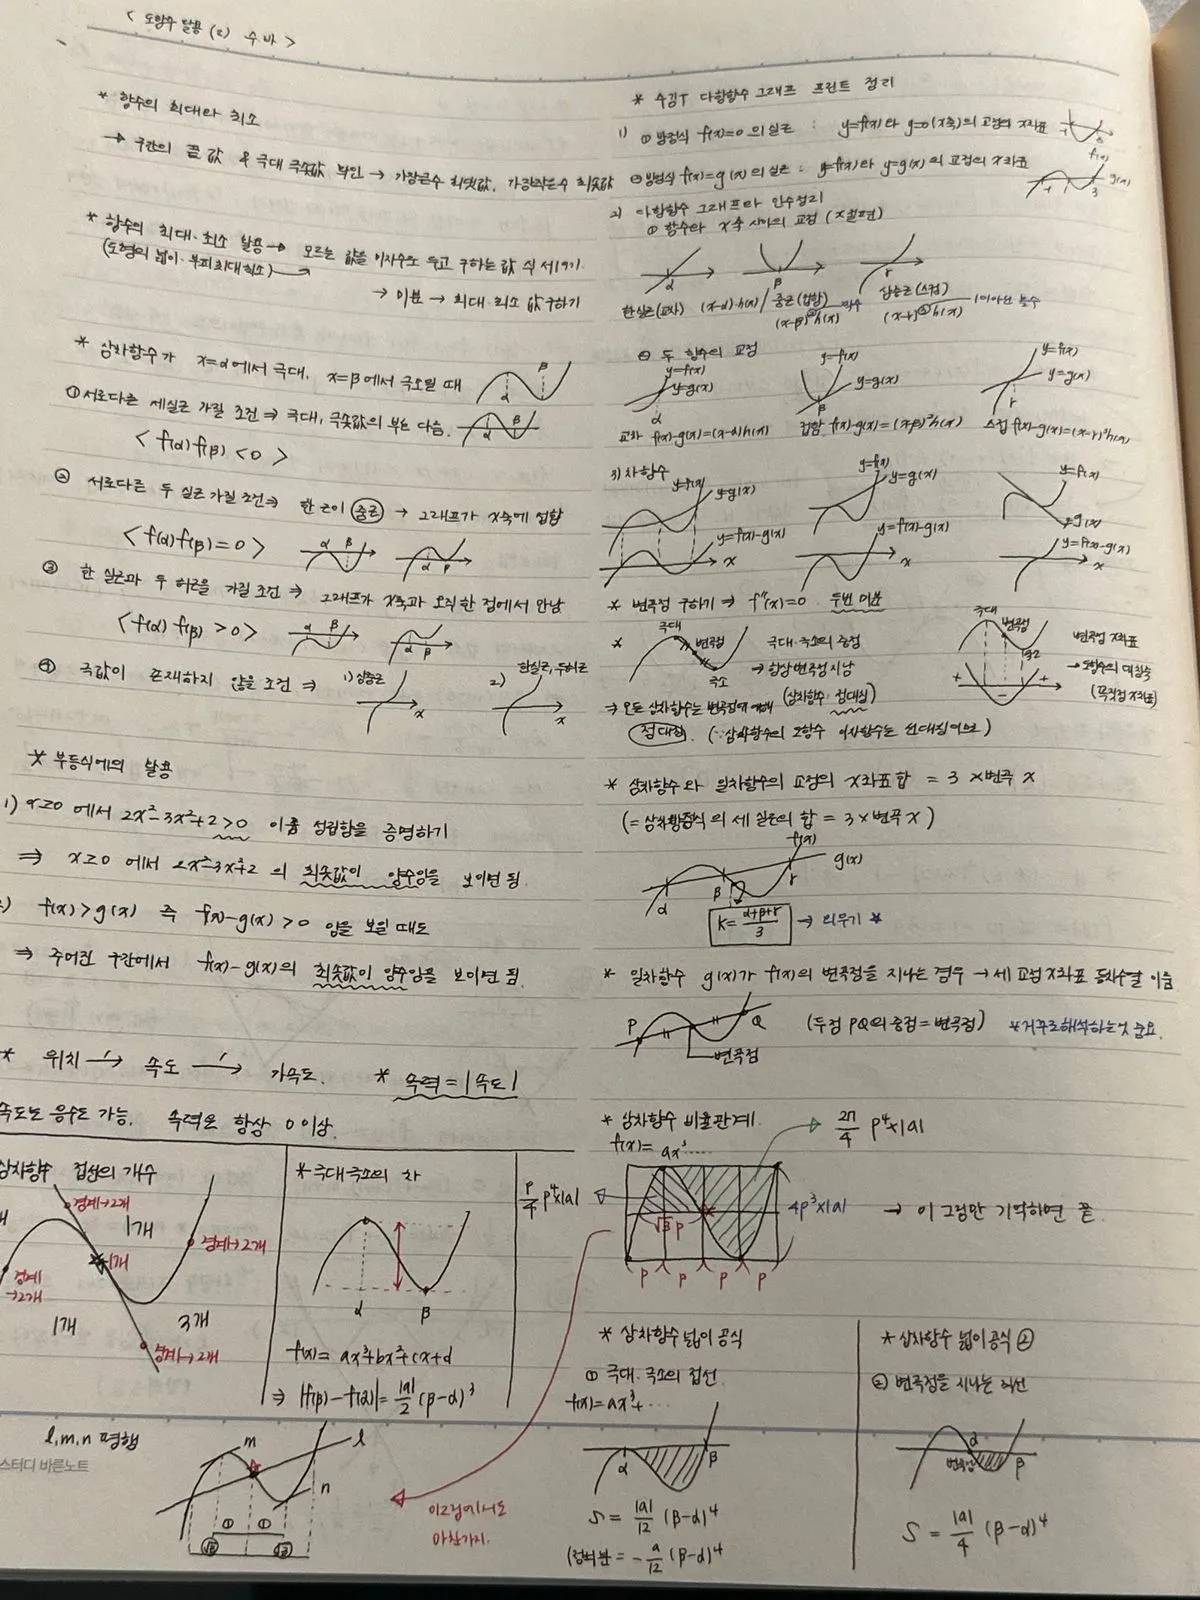 < 도함수 활용 (2) 수바 >
* 함수의 최대와 최소
→ 구간의 끝 값 & 극대 극솟값 확인 → 가장큰수 최댓값, 가장작은수 최솟값
* 함수의 최대·최소 활용 → 모르는 값을 미지수로 두고 구하는 값 식 세우기
(도형의 넓이·부피 최대최소)
→ 미분 → 최대·최소 값 구하기
* 삼차함수가 x=α에서 극대, x=β에서 극소일 때
α β
① 서로다른 세실근 가질 조건 ⇒ 극대, 극솟값의 부호 다름.
α β
< f(α)f(β) <0 >
② 서로다른 두 실근 가질 조건 ⇒ 한 근이 중근 → 그래프가 x축에 접함
< f(α)f(β)=0 >
α β α β
③ 한 실근과 두 허근을 가질 조건 ⇒ 그래프가 x축과 오직 한 점에서 만남
< f(α) f(β) >0 >
α β α β
④ 극값이 존재하지 않을 조건 ⇒ 1) 삼중근 2) 한실근, 두허근
x x
* 부등식에의 활용
1) x≥0 에서 2x³-3x²+2>0 이 성립함을 증명하기
⇒ x≥0 에서 2x³-3x²+2 의 최솟값이 양수임을 보이면 됨.
f(x)>g(x) 즉 f(x)-g(x) >0 임을 보일 때도
⇒ 주어진 구간에서 f(x)-g(x)의 최솟값이 양수임을 보이면 됨.
* 위치 → 속도 → 가속도. * 속력=|속도|
속도는 음수도 가능. 속력은 항상 0이상.
삼차함수 접선의 개수
경계→2개
1개
경계→2개
1개
경계
→2개
1개 3개
경계→2개
* 극대극소의 차
α β
f(x)= ax³+bx²+cx+d
⇒ |f(β)-f(α)|= |a|/2 (β-α)³
l,m,n 평행
m l
n
① ①
√3 √3
스터디 바른노트
* 수김T 다항함수 그래프 프린트 정리
1) ① 방정식 f(x)=0 의 실근 : y=f(x)와 y=0(x축)의 교점의 x좌표
f(x)
② 방정식 f(x)=g(x) 의 실근 : y=f(x)와 y=g(x) 의 교점의 x좌표
g(x)
3
2) 다항함수 그래프와 인수정리
① 함수와 x축 사이의 교점 (x절편)
α β r
한실근(교차) (x-α)·h(x) / 중근(접함) (x-β)²h(x) 짝수 삼중근(스접) (x-r)³h(x) 1이아닌 홀수
② 두 함수의 교점
y=f(x) y=f(x) y=f(x)
y=g(x) y=g(x) y=g(x)
α β r
교차 f(x)-g(x)=(x-α)h(x) 접함 f(x)-g(x)=(x-β)²h(x) 스접 f(x)-g(x)=(x-r)³h(x)
3) 차함수
y=f(x) y=f(x) y=f(x)
y=g(x) y=g(x) y=g(x)
y=f(x)-g(x) y=f(x)-g(x) y=f(x)-g(x)
x x
* 변곡점 구하기 ⇒ f''(x)=0 두번 미분
* 극대 변곡점 극소
극대·극소의 중점
→ 항상 변곡점 지남
(삼차함수 점대칭)
극대 변곡점 극소
+ - +
변곡점 x좌표
→ 도함수의 대칭축
(꼭짓점 x좌표)
⇒ 모든 삼차함수는 변곡점에 대해
점대칭. (∵삼차함수의 도함수 이차함수는 선대칭이므로)
* 삼차함수와 일차함수의 교점의 x좌표 합 = 3 × 변곡 x
(= 삼차방정식의 세 실근의 합 = 3×변곡 x )
f(x)
g(x)
α β r
K= α+β+r/3 → 외우기 *
* 일차함수 g(x)가 f(x)의 변곡점을 지나는 경우 → 세 교점 x좌표 등차수열 이룸
P Q
변곡점
(두점 PQ의 중점=변곡점) *거꾸로해석하는것 중요.
* 삼차함수 비율관계.
f(x)= ax³......
27/4 p⁴×|a|
p/4 p⁴×|a|
√3 p
4p³×|a|
→ 이 그림만 기억하면 끝.
p p p p
이그림에서도
마찬가지.
* 삼차함수 넓이 공식
① 극대·극소의 접선
f(x)=ax³+...
α β
S= |a|/12 (β-α)⁴
= -a/12 (β-α)⁴
* 삼차함수 넓이공식 ②
② 변곡점을 지나는 직선
α
변곡점 β
S = |a|/4 (β-α)⁴